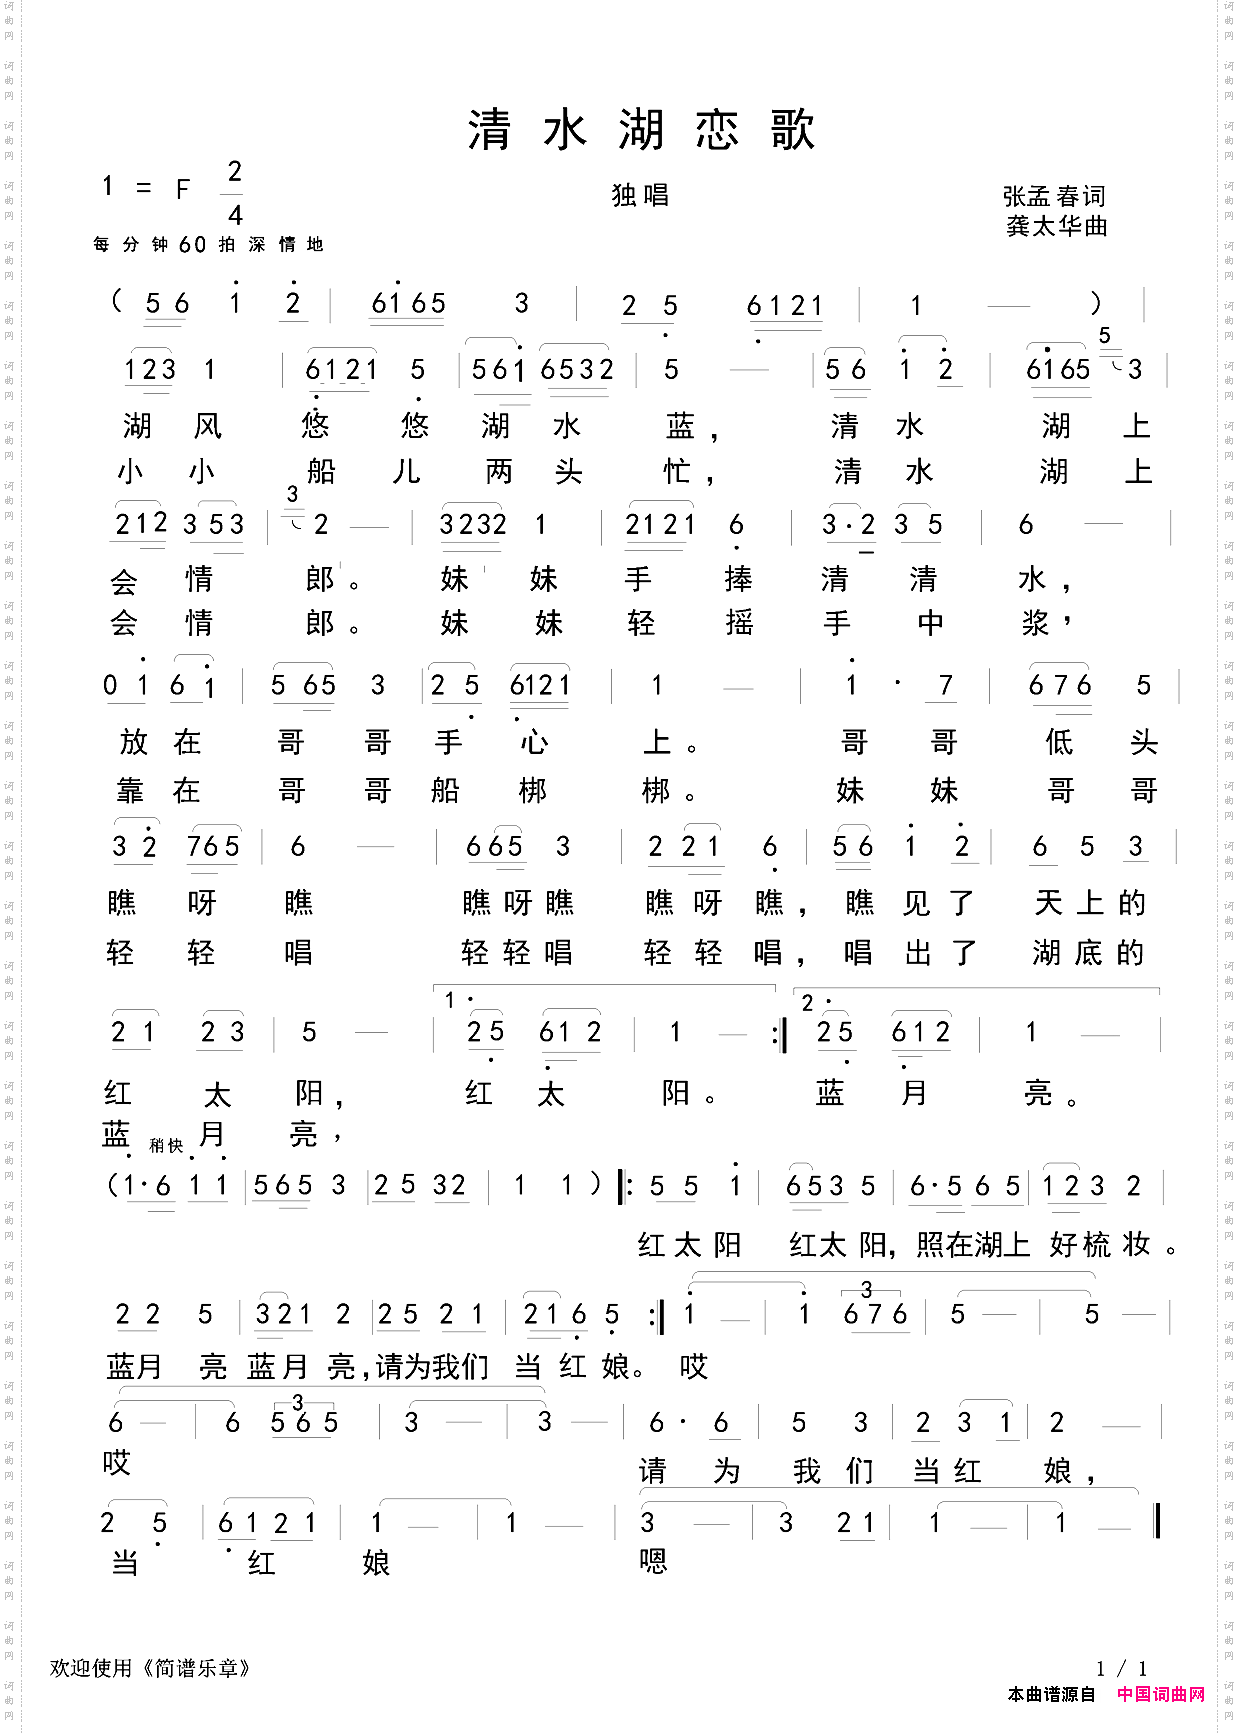 清水湖恋歌
1 = F 2/4
独唱
张孟春词
龚太华曲
每分钟60拍深情地
( 5 6 1 2 | 6165 3 | 2 5 6121 | 1 — ) |
5
123 1 | 6121 5 | 561 6532 | 5 — | 56 1 2 | 6165 3 |
湖风悠悠湖水蓝，清水湖上
小小船儿两头忙，清水湖上
3
212 353 | 2 — | 3232 1 | 2121 6 | 3·2 3 5 | 6 — |
会情郎。妹妹手捧清清水，
会情郎。妹妹轻摇手中浆，
0 1 6 1 | 5 65 3 | 2 5 6121 | 1 — | 1 · 7 | 676 5 |
放在哥哥手心上。哥哥低头
靠在哥哥船梆梆。妹妹哥哥
3 2 765 | 6 — | 665 3 | 2 21 6 | 56 1 2 | 6 5 3 |
瞧呀瞧 瞧呀瞧 瞧呀瞧，瞧见了天上的
轻轻唱 轻轻唱 轻轻唱，唱出了湖底的
1· 2·
21 23 | 5 — | 25 612 | 1 — :| 25 612 | 1 — |
红太阳，红太阳。蓝月亮。
蓝月亮，
稍快
(1·6 1 1 | 565 3 | 25 32 | 1 1 ) |: 55 1 | 6535 | 6·5 65 | 123 2 |
红太阳 红太阳，照在湖上 好梳妆。
3
22 5 | 321 2 | 25 21 | 216 5 :| 1 — | 1 676 | 5 — | 5 — |
蓝月亮 蓝月亮，请为我们 当红娘。哎
3
6 — | 6 565 | 3 — | 3 — | 6· 6 | 5 3 | 2 3 1 | 2 — |
哎 请为我们当红娘，
2 5 | 61 21 | 1 — | 1 — | 3 — | 3 21 | 1 — | 1 — ‖
当红娘 嗯
欢迎使用《简谱乐章》
1 / 1
本曲谱源自 中国词曲网